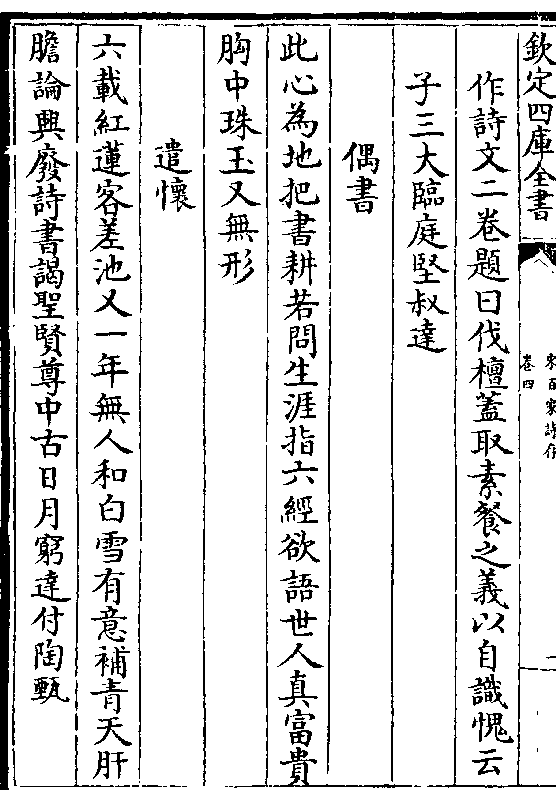 欽定四庫全書
卷四
作詩文二卷題曰伐檀蓋取素餐之義以自識愧云
子三大臨庭堅叔達
偶書
此心為地把書耕若問生涯指六經欲語世人真富貴
胸中珠玉又無形
遣懷
六載紅蓮客差池又一年無人和白雪有意補青天肝
膽論興廢詩書謁聖賢尊中古日月窮達付陶甄